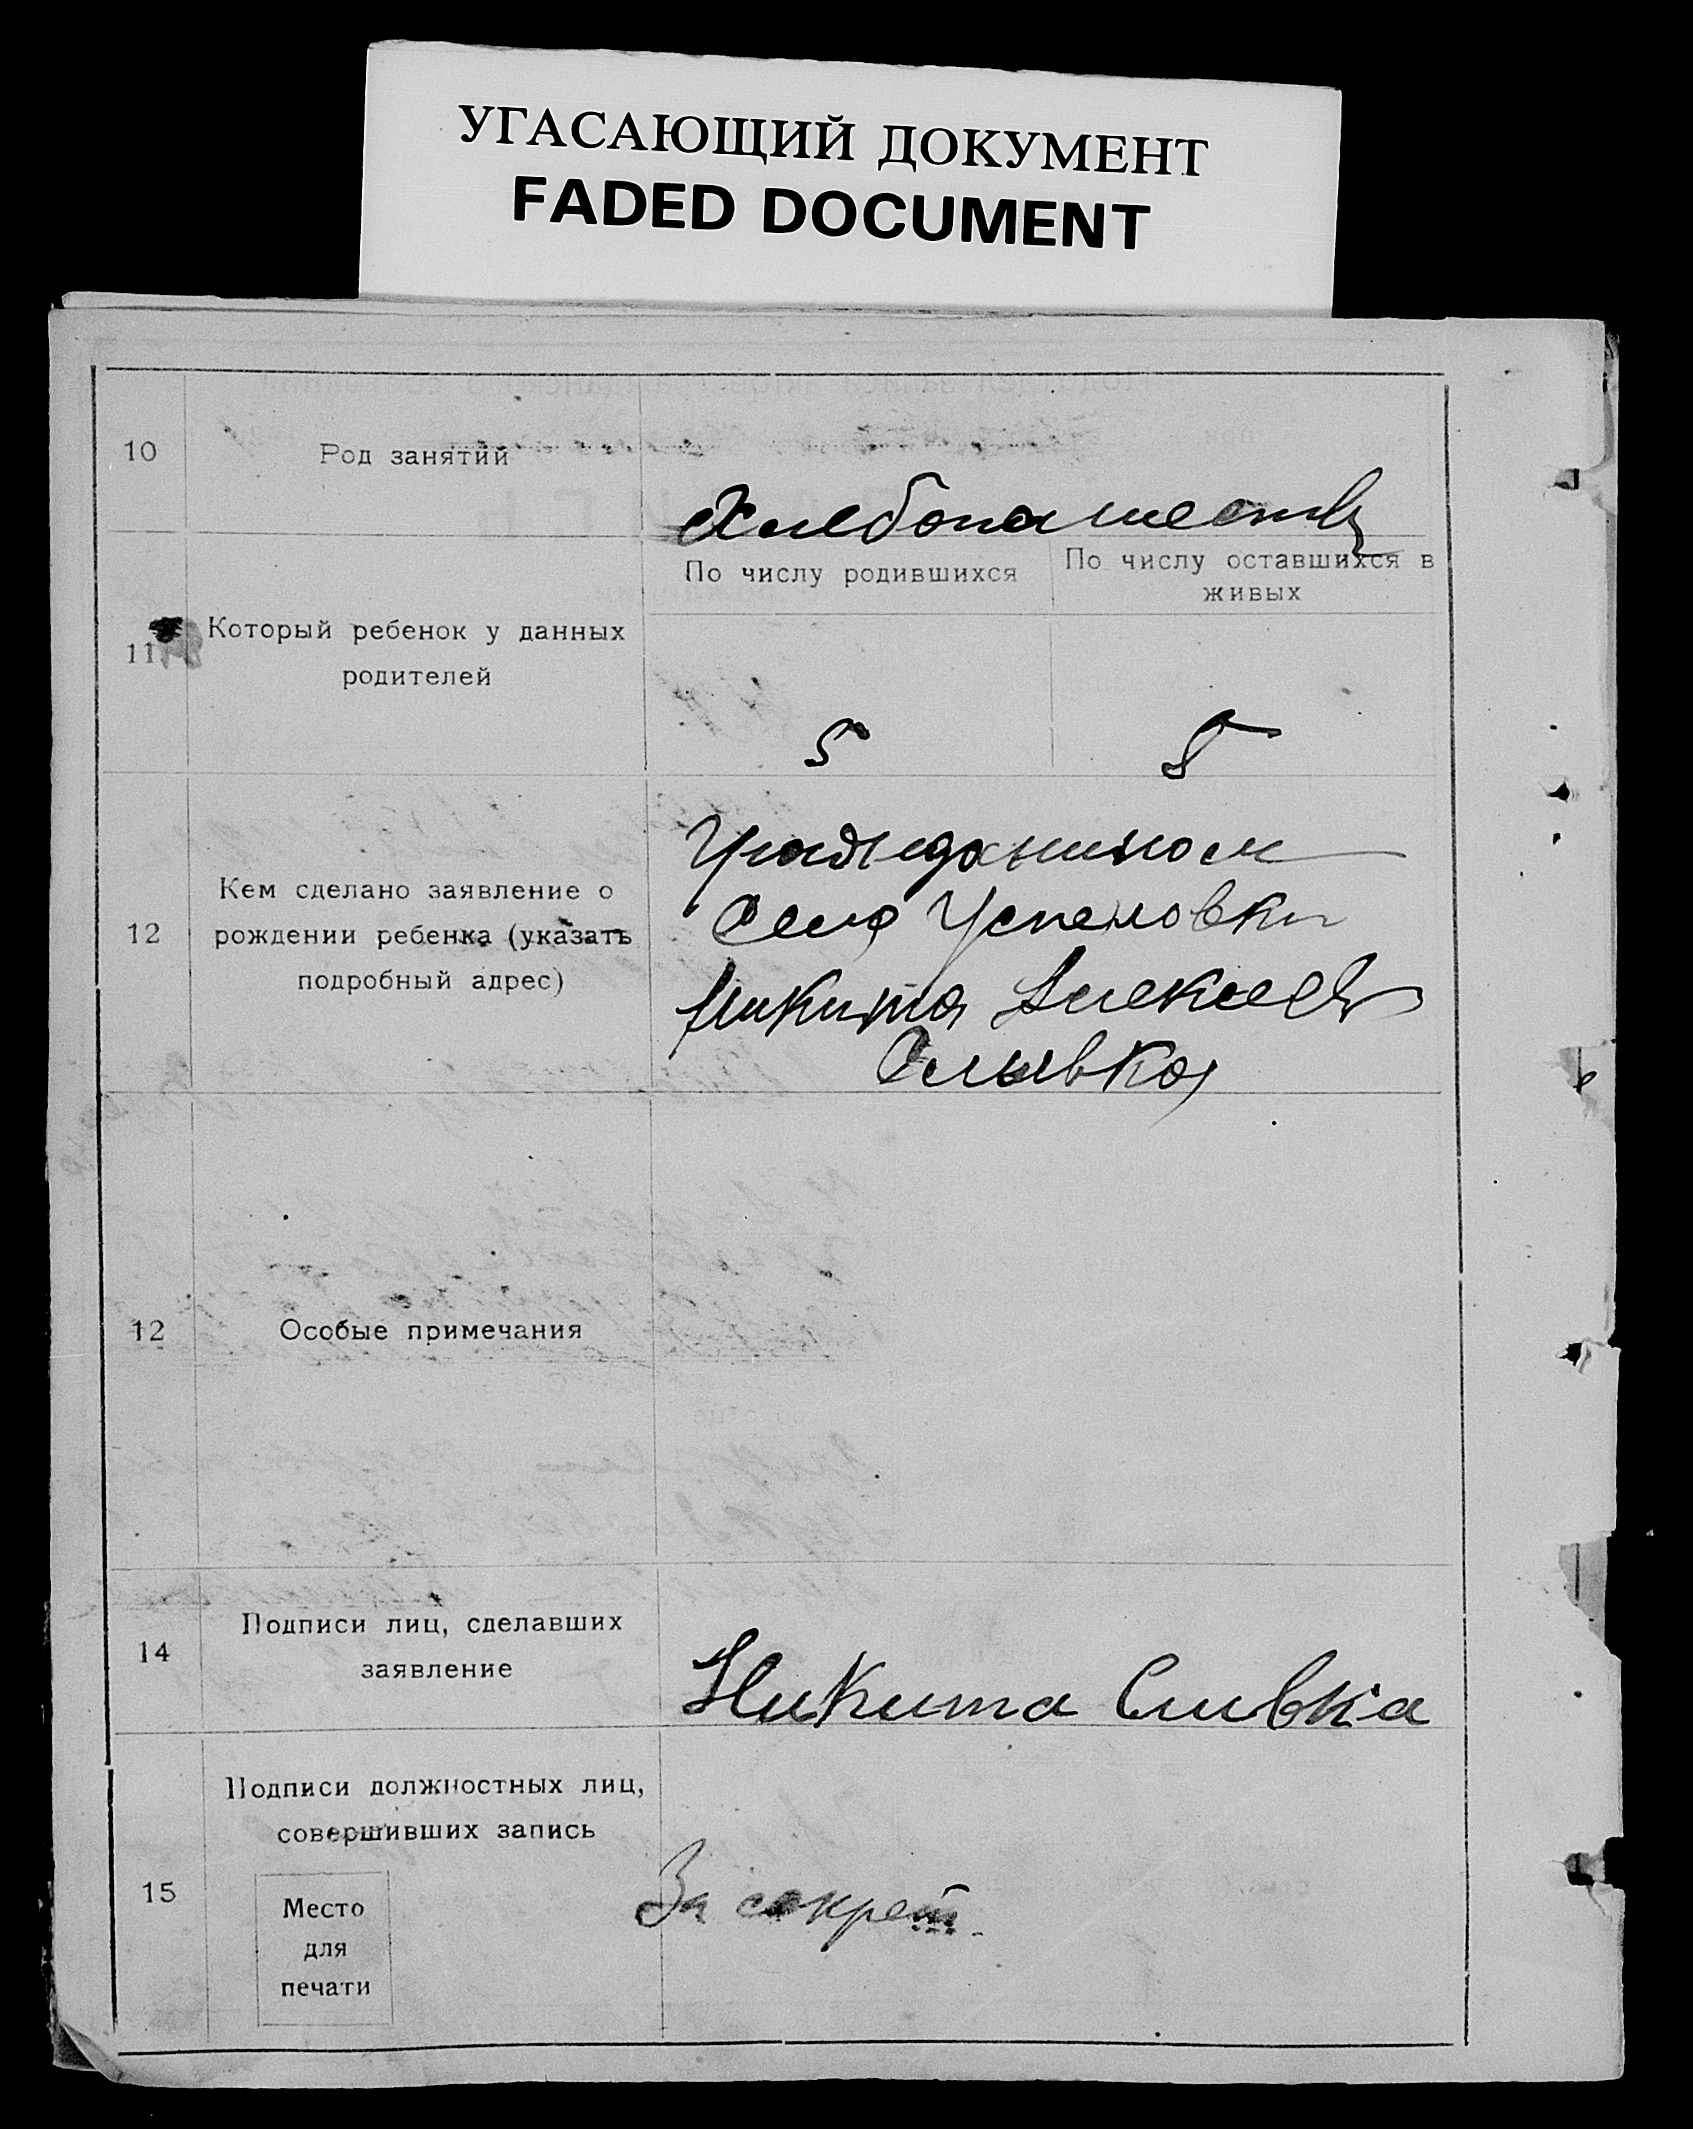 УГАСАЮЩИЙ ДОКУМЕНТ
FADED DOCUMENT
10
Род занятий
Хлебопашество
11
Который ребенок у данных
родителей
По числу родившихся
По числу оставшихся в
живых
5
5
12
Кем сделано заявление о
рождении ребенка (указать
подробный адрес)
Гражданином
Села Успеновки
Никита Алексеев
Слывка
12
Особые примечания
14
Подписи лиц, сделавших
заявление
Никита Сливка
15
Подписи должностных лиц,
совершивших запись
Место
для
печати
За секрет.